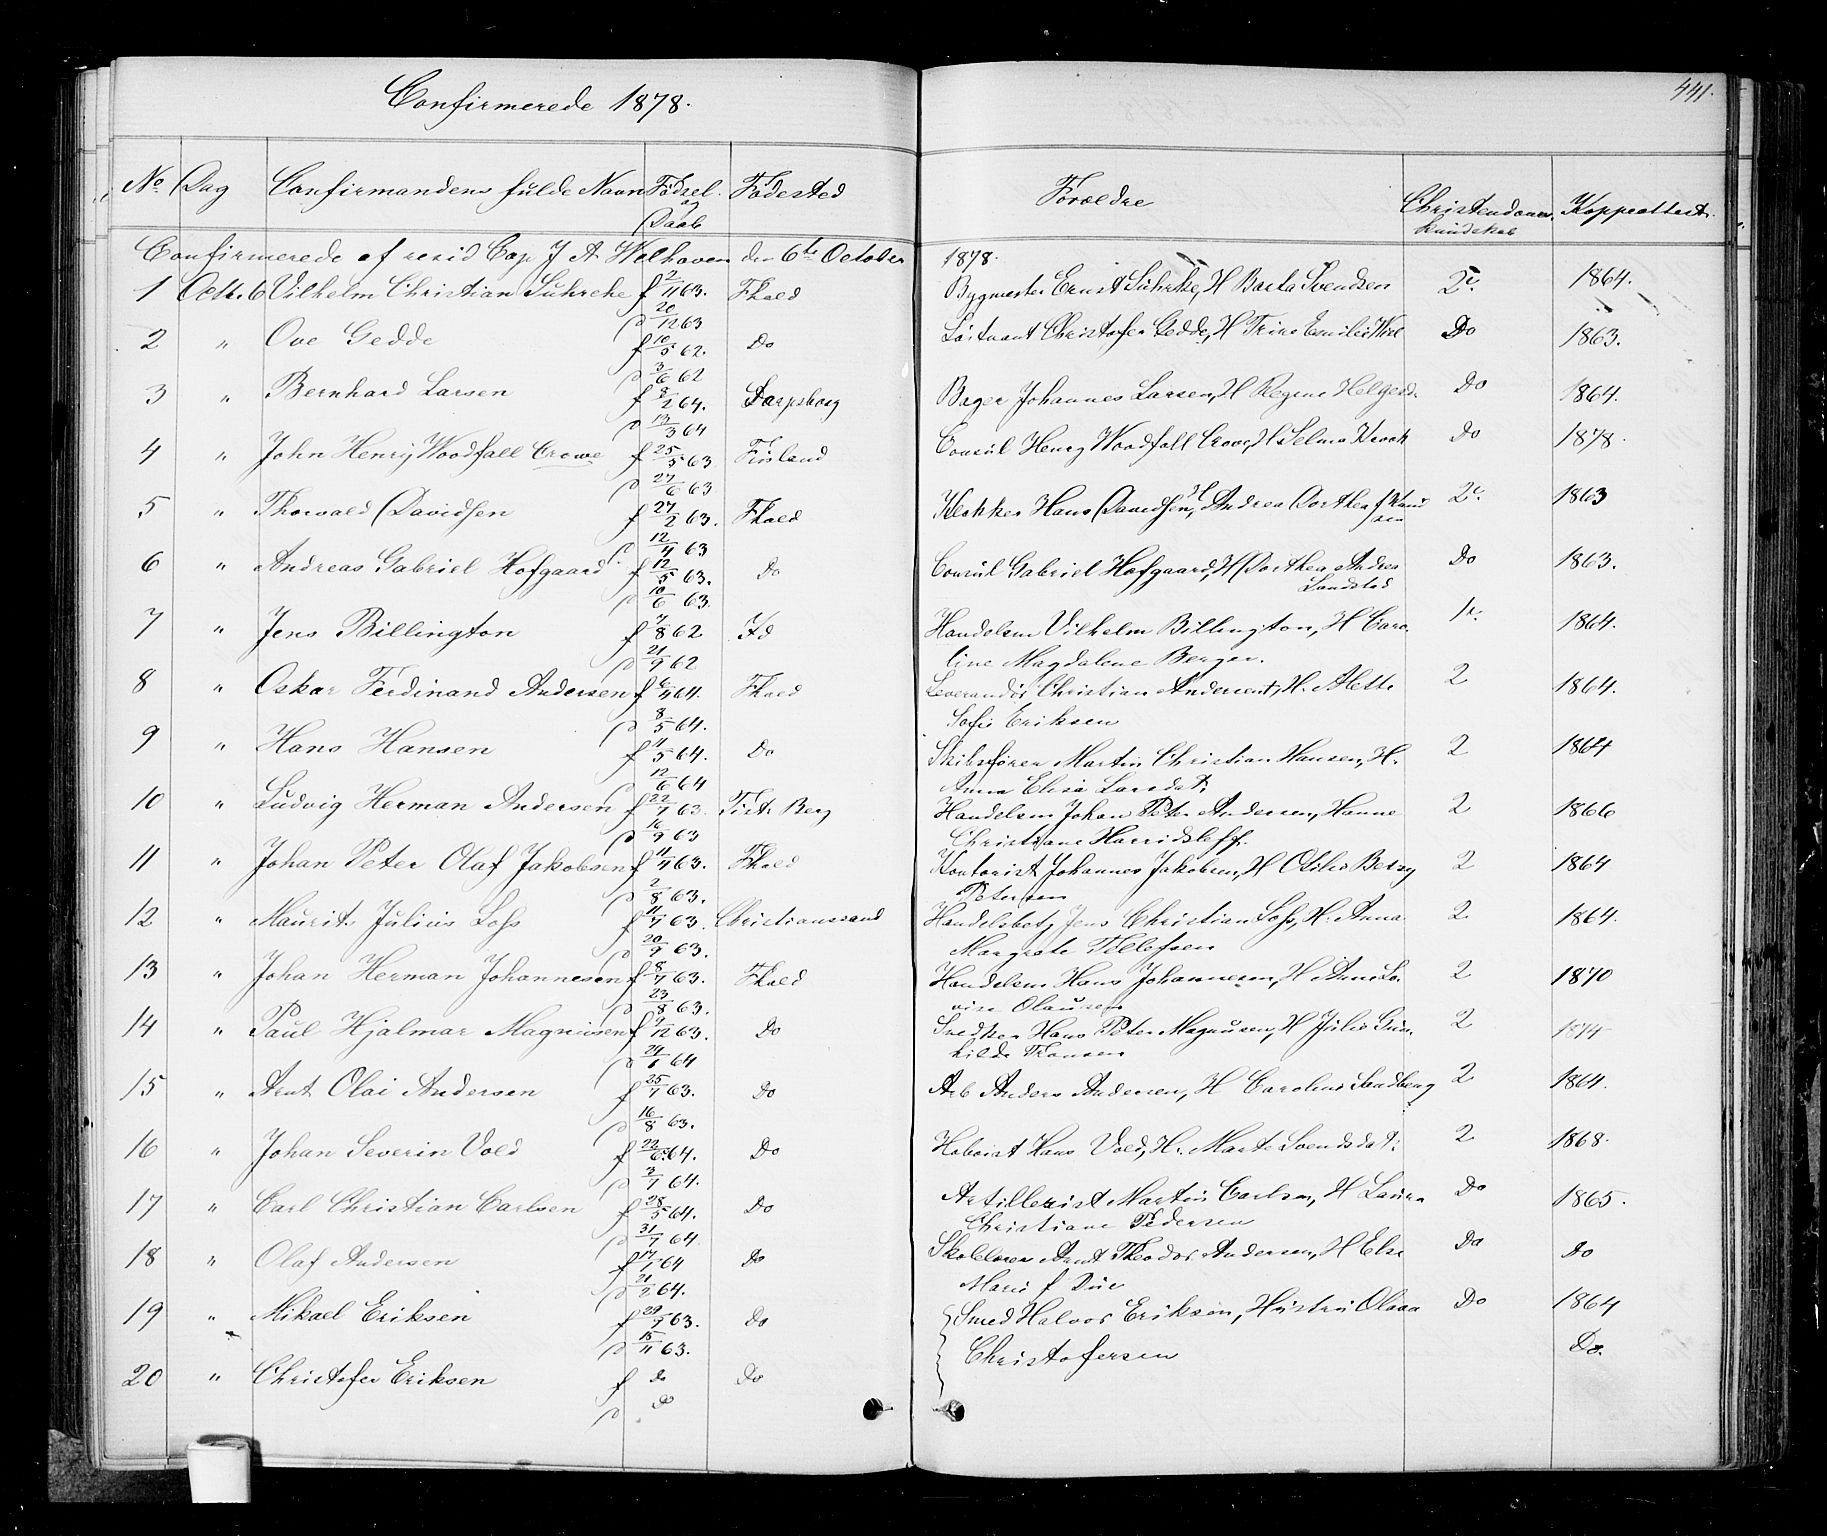 Confirmerede 1878.
441.
No Dag Confirmandens fulde Navn Fødsel og Daab Fødested Forældre Christendoms Kundskab Koppeattest.
Confirmerede af resid Cap J A Welhaven den 6te October 1878.
1 Octb. 6 Vilhelm Christian Suhrche f 2/11 63. Fhald Bygmester Ernst Suhrke, H Barta Svendsen 2. 1864.
D 20/12 63
2 " Ove Gedde f 10/5 62. Do Løitnant Christofer Gedde, H Trine Emilie Do 1863.
D 3/6 62
3 " Bernhard Larsen f 8/2 64. Sarpsborg Bager Johannes Larsen, H Regine Helgesd. Do 1864.
D 13/3 64
4 " John Henry Woodfall Crowe f 25/5 63. Finland Consul Henry Woodfall Crowe, H Selma Krook Do 1878.
D 27/6 63
5 " Thorvald Davidsen f 27/2 63. Fhald Klokker Hans Davidsen, H Andrea Dorthea f Knud
sen 2. 1863
D 12/4 63
6 " Andreas Gabriel Hofgaard f 12/5 63. Do Consul Gabriel Hofgaard, H Dorthea Andrea
Landstad Do 1863.
D 10/6 63.
7 " Jens Billington f 7/8 62 Id Handelsm Vilhelm Billington, H Caro-
line Magdalene Berger. 1. 1864.
D 21/9 62
8 " Oskar Ferdinand Andersen f 6/4 64. Fhald Leverandør Christian Andersen, H. Alette
Sofie Eriksen 2 1864.
D 8/5 64.
9 " Hans Hansen f 11/5 64. Do Skibsfører Martin Christian Hansen, H.
Anna Elisa Larsdat. 2 1864
D 12/6 64
10 " Ludvig Herman Andersen f 22/7 63. Tist. Berg Handelsm Johan Peter Andersen, Hanne
Christiane Harridsleff. 2 1866
D 16/9 63
11 " Johan Peter Olaf Jakobsen f 11/4 63. Fhald Kontorist Johannes Jakobsen, H Otilie Betzy
Petersen 2 1864
D 2/8 63.
12 " Maurits Julius Loss f 11/7 63. Christianssand Handelsbetj Jens Christian Loss, H. Anna
Margrete Tellefsen 2 1864.
D 20/9 63.
13 " Johan Herman Johannesen f 8/7 63. Fhald Handelsm Hans Johannesen, H Anne Lo
vise Olausen 2 1870
D 23/8 63.
14 " Paul Hjalmar Magnusen f 9/12 63. Do Snedker Hans Peter Magnusen, H Julie Gun-
hilde Fransen 2 1874
D 24/1 64
15 " Arnt Olai Andersen f 25/1 63. Do Arb Anders Andersen, H Caroline Sandberg 2 1864.
D 16/8 63.
16 " Johan Severin Vold f 22/6 64. Do Hoboist Hans Vold, H. Marte Svendsdat. 2 1868.
D 3/7 64.
17 " Carl Christian Carlsen f 28/5 64. Do Artillerist Martin Carlsen, H Laura
Christiane Pedersen Do 1865.
D 31/7 64
18 " Olaf Andersen f 17/1 64 Do Skolelærer Arnt Theodor Andersen, H Else
Marie f Due Do Do
D 21/2 64.
19 " Mikael Eriksen f 29/9 63. Do Smed Halvor Eriksen, Hustru Olava
Christofersen Do 1864
D 15/11 63.
20 " Christofer Eriksen f Do Do Do.
D Do